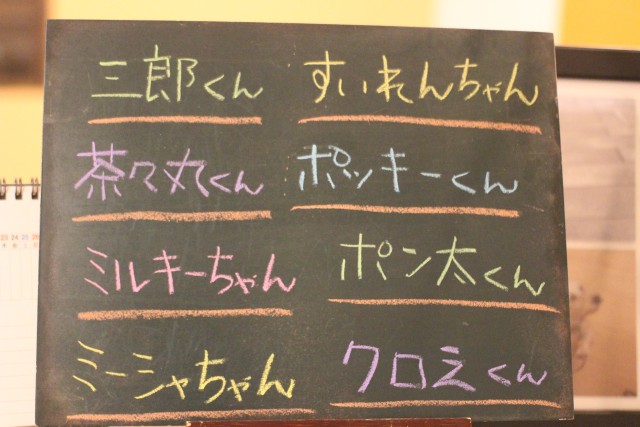 三郎くん
すいれんちゃん
茶々丸くん
ポッキーくん
ミルキーちゃん
ポン太くん
ミーシャちゃん
クロえくん
23 24 25 26